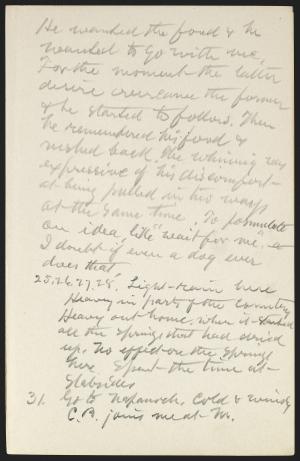 He wanted the food & he
wanted to go with me.
For the moment the latter
desire overcame the former
& he started to follow. Then
he remembered his food &
rushed back. The whining was
expressive of his discomfort
at being pulled in two ways
at the same time. To formulate
an idea like "wait for me" - a
I doubt if even a dog ever
does that.
25, 26, 27, 28, Light rain here
Heavy in parts of the country
Heavy out home, when it started
all the springs that had dried
up. No effect on the springs
here. Spent the time at
Slabsides
31. Go to Napanoch. Cold & windy
C.B. joins me at